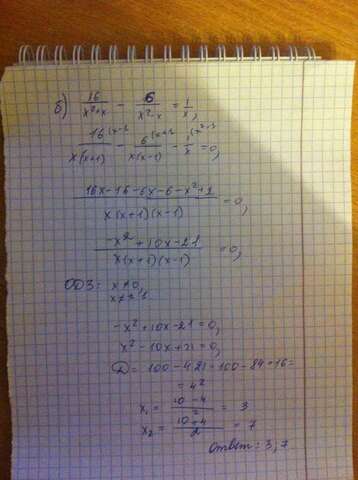 б) 16/(x²+x) - 6/(x²-x) = 1/x,
16^(x-1/x(x+1) - 6^(x+1/x(x-1) - 1^(x²-1/x = 0,
(16x-16-6x-6-x²+1)/(x(x+1)(x-1)) = 0,
(-x²+10x-21)/(x(x+1)(x-1)) = 0,
ОДЗ: x≠0,
x≠±1
-x²+10x-21=0,
x²-10x+21=0,
D= 100-4·21=100-84=16=
=4²
x₁ = (10-4)/2 = 3
x₂ = (10+4)/2 = 7
Ответ: 3, 7